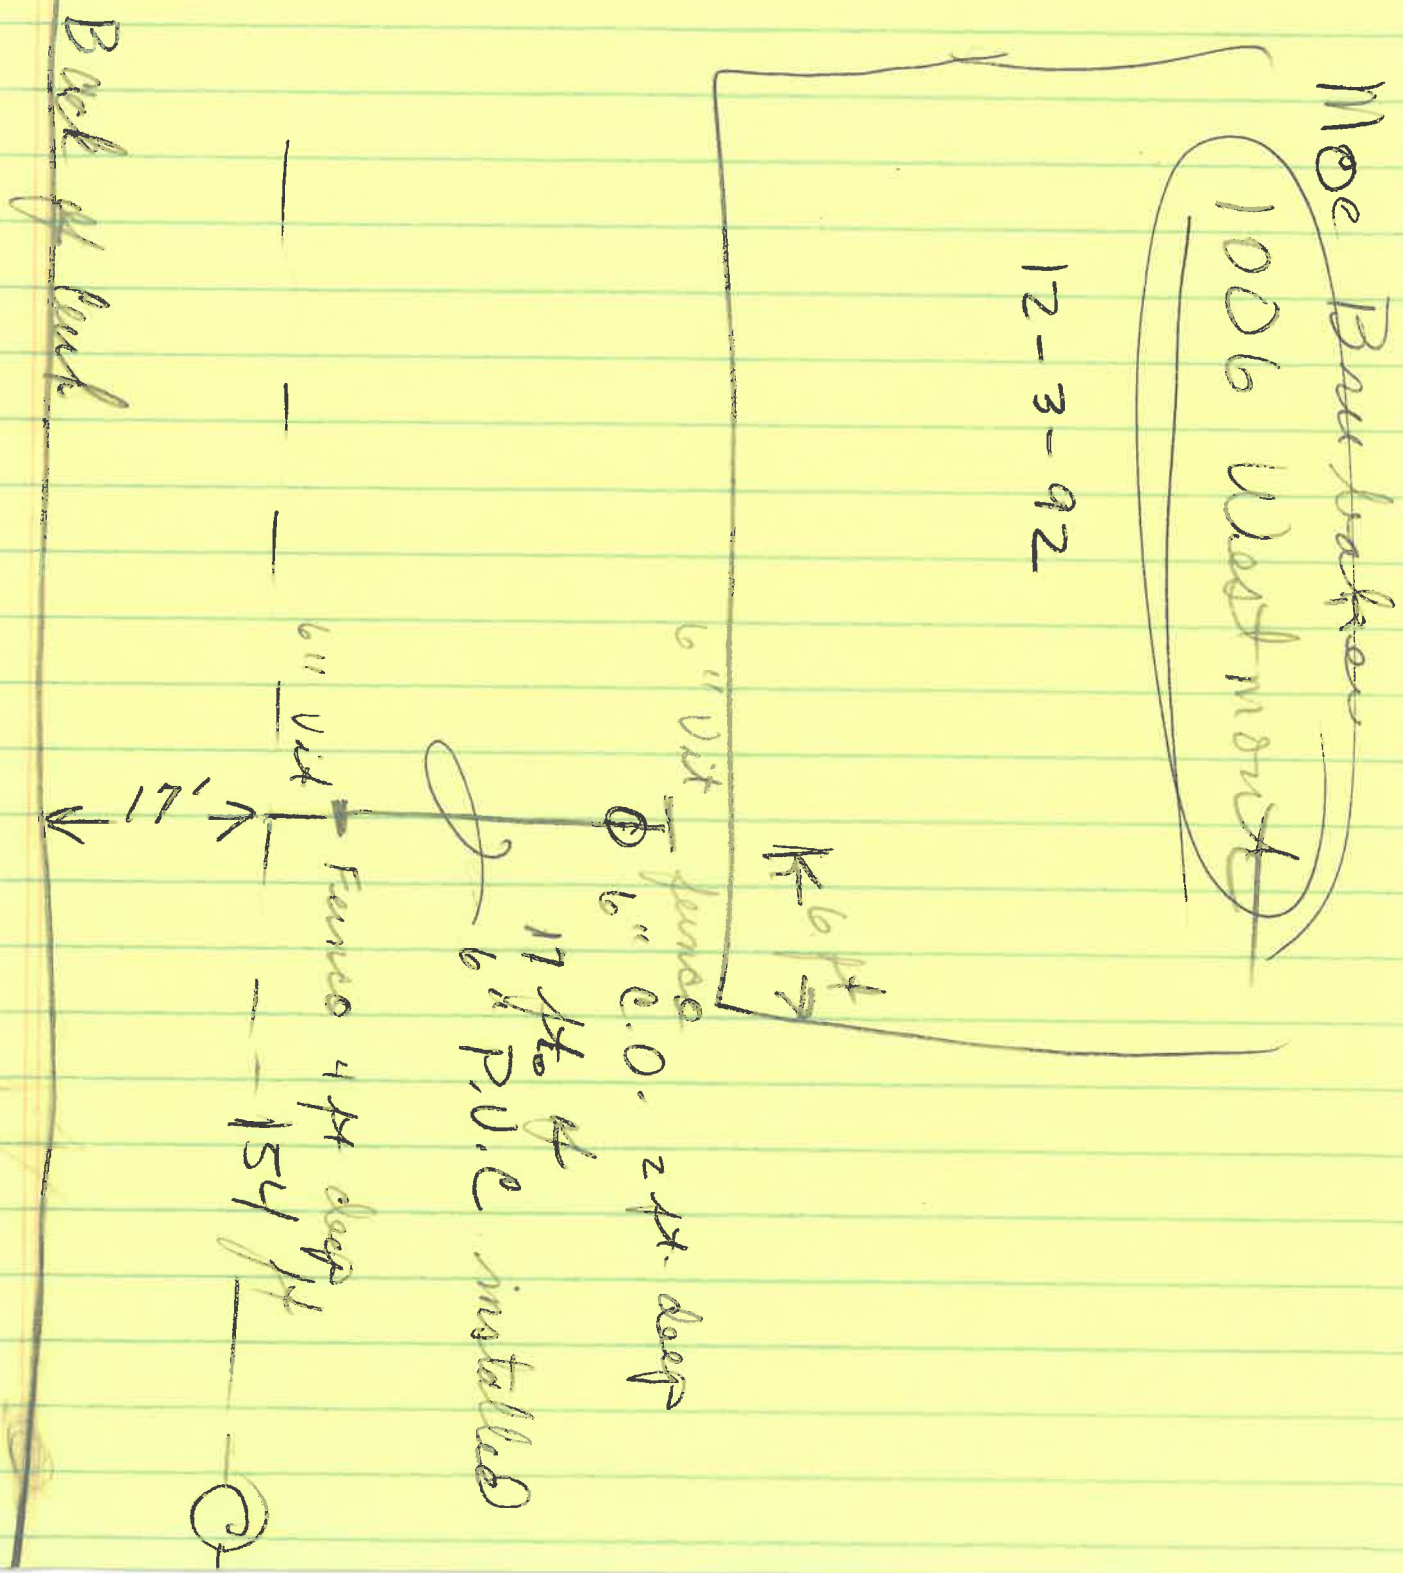 Moe Brubaker
1006 Westmont
12-3-92
6 ft
6" Vit
fernco
6" C.O. 2 ft. deep
17 ft. of
6" P.V.C installed
6" Vit
Fernco 4 ft deep
17'
154 ft
Back of Curb